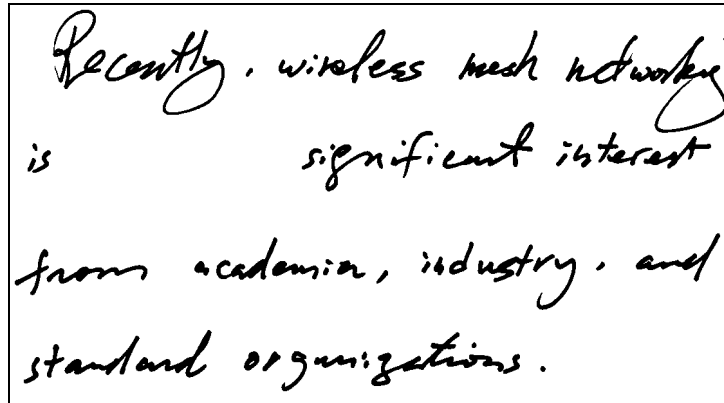 Recently, wireless mesh networking
is significant interest
from academia, industry, and
standard organizations.